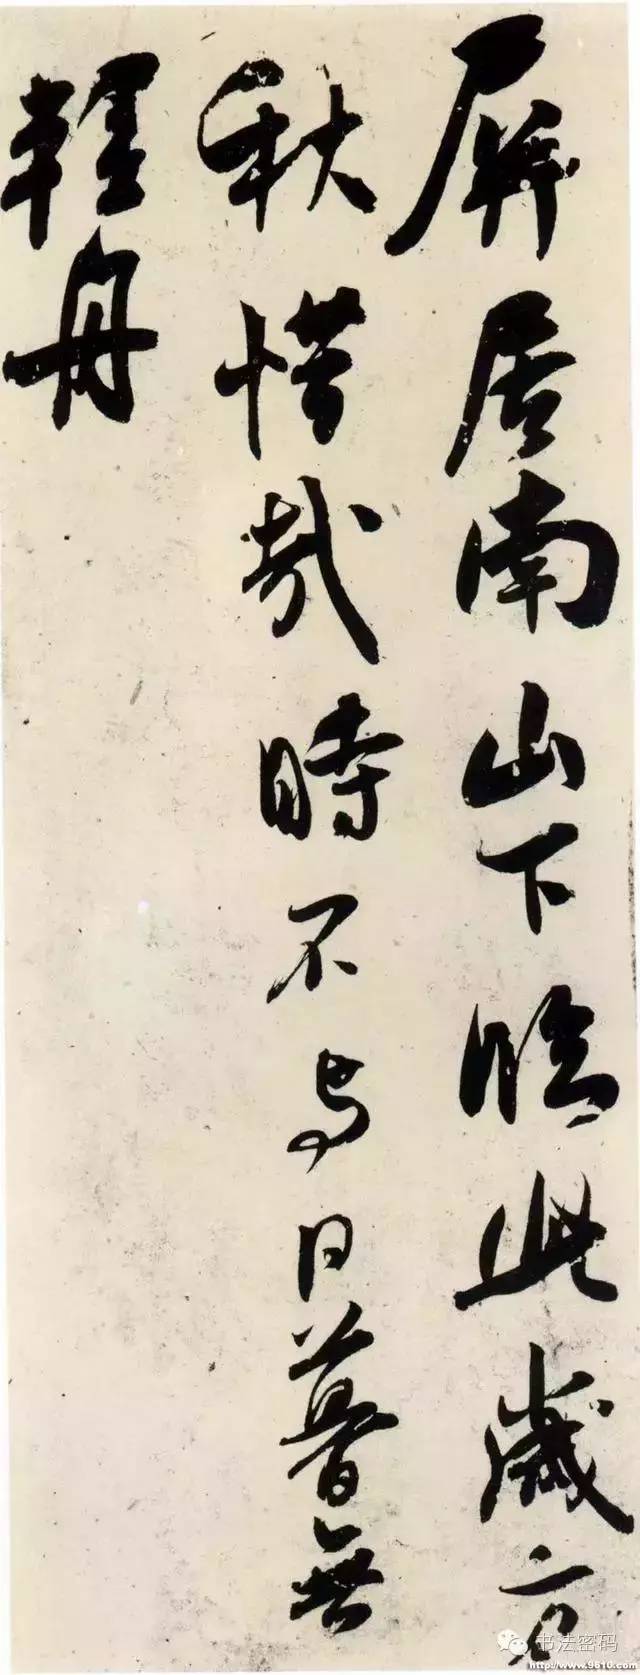 屏居南山下臨此歲方
秋惜哉時不与日暮無
輕舟
书法密码
http://www.9610.com